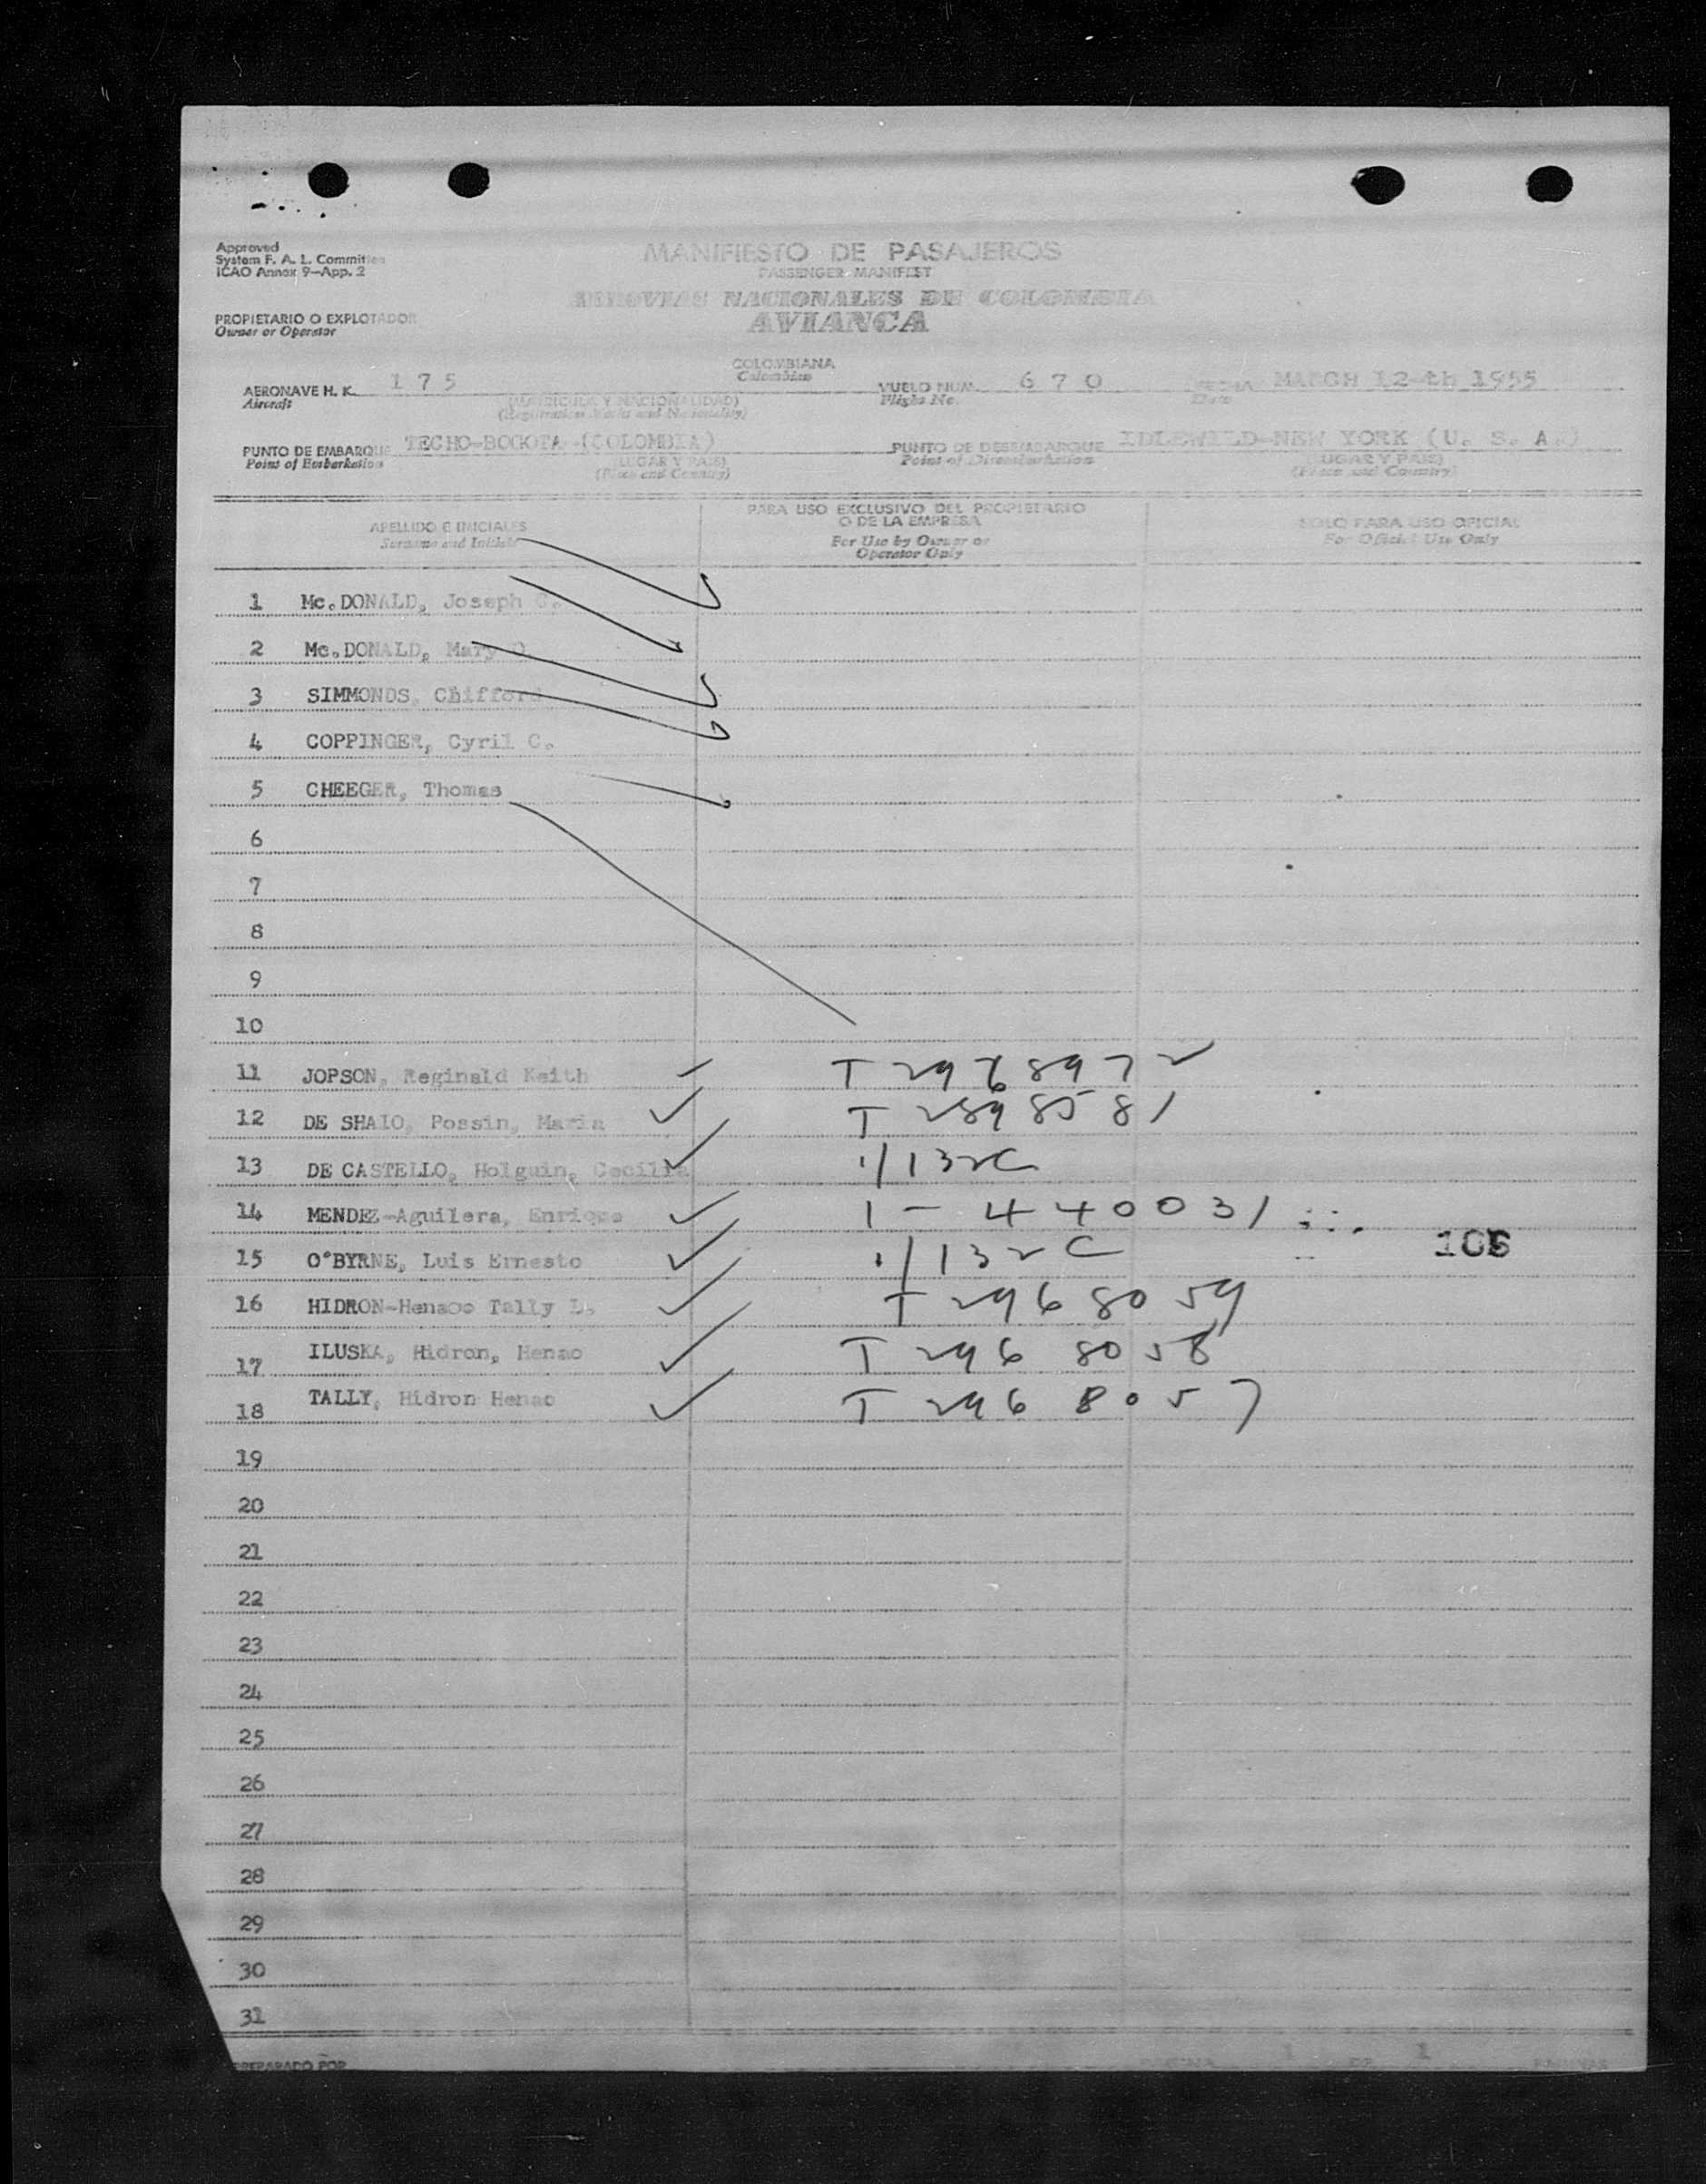 Approved
System F. A. L. Committee
ICAO Annex 9-App. 2
MANIFIESTO DE PASAJEROS
PASSENGER MANIFEST
AEROVIAS NACIONALES DE COLOMBIA
AVIANCA
PROPIETARIO O EXPLOTADOR
Owner or Operator
COLOMBIANA
Colombian
AERONAVE H. K. 175 VUELO NUM. 670 FECHA MARCH 12-th 1955
Aircraft (MATRICULA Y NACIONALIDAD) Flight No. Date
(Registration Marks and Nationality)
PUNTO DE EMBARQUE TECHO-BOGOTA (COLOMBIA) PUNTO DE DESEMBARQUE IDLEWILD-NEW YORK (U. S. A.)
Point of Embarkation (LUGAR Y PAIS) Point of Disembarkation (LUGAR Y PAIS)
(Place and Country) (Place and Country)
APELLIDO E INICIALES PARA USO EXCLUSIVO DEL PROPIETARIO SOLO PARA USO OFICIAL
Surname and Initials O DE LA EMPRESA For Official Use Only
For Use by Owner or
Operator Only
1 Mc.DONALD, Joseph
2 Mc.DONALD, Mary
3 SIMMONDS, Chifford
4 COPPINGER, Cyril C.
5 CHEEGER, Thomas
6
7
8
9
10
11 JOPSON, Reginald Keith T 2968972
12 DE SHAIO, Possin, Maria T 2898581
13 DE CASTELLO, Holguin, Cecilia 1/132C
14 MENDEZ-Aguilera, Enrique 1-440031
15 O'BYRNE, Luis Ernesto 1/132C
16 HIDRON-Henaoo Tally L. T 2968059
17 ILUSKA, Hidron, Henao T 296 8058
18 TALLY, Hidron Henao T 296 8057
19
20
21
22
23
24
25
26
27
28
29
30
31
PREPARADO POR PAGINA 1 DE 1 PAGINAS